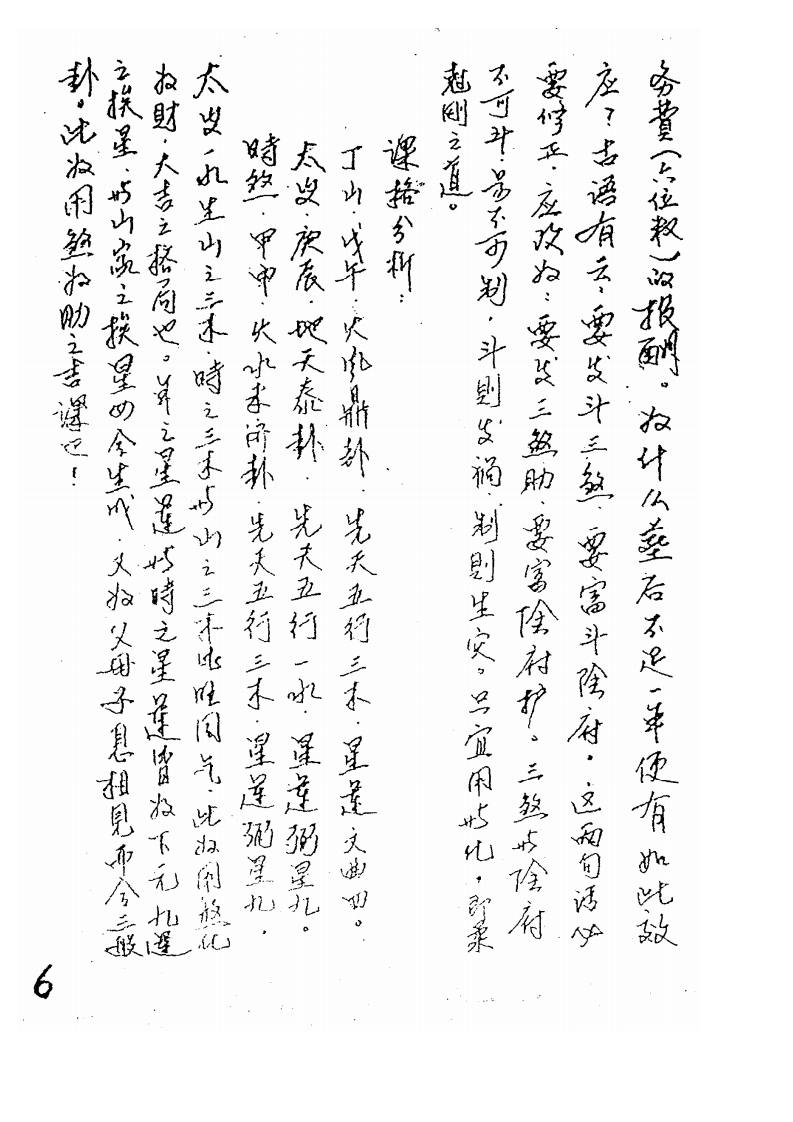 务費(六位数)的报酬。为什么葬后不足一年便有如此效
应？古语有云：要发斗三煞，要富斗陰府。这两句话必
要修正，应改为：要发三煞助，要富陰府护。三煞与陰府
不可斗，另不可制，斗則发禍，制則生灾。只宜用与化，即柔
尅刚之道。
課格分析：
丁山，戊午，火風鼎卦，先天五行三木，星運文曲四。
太岁，庚辰，地天泰卦，先天五行一水，星運弼星九。
時煞，甲申，火水未济卦，先天五行三木，星運弼星九，
太岁一水生山之三木，時之三木与山之三木比旺同气，此为閑煞化
为財，大吉之格局也。年之星運与時之星運皆为下元九運
之挨星，与山家之挨星四合生成，又为父母子息相見而合三般
卦。此为用煞为助之吉課也！
6